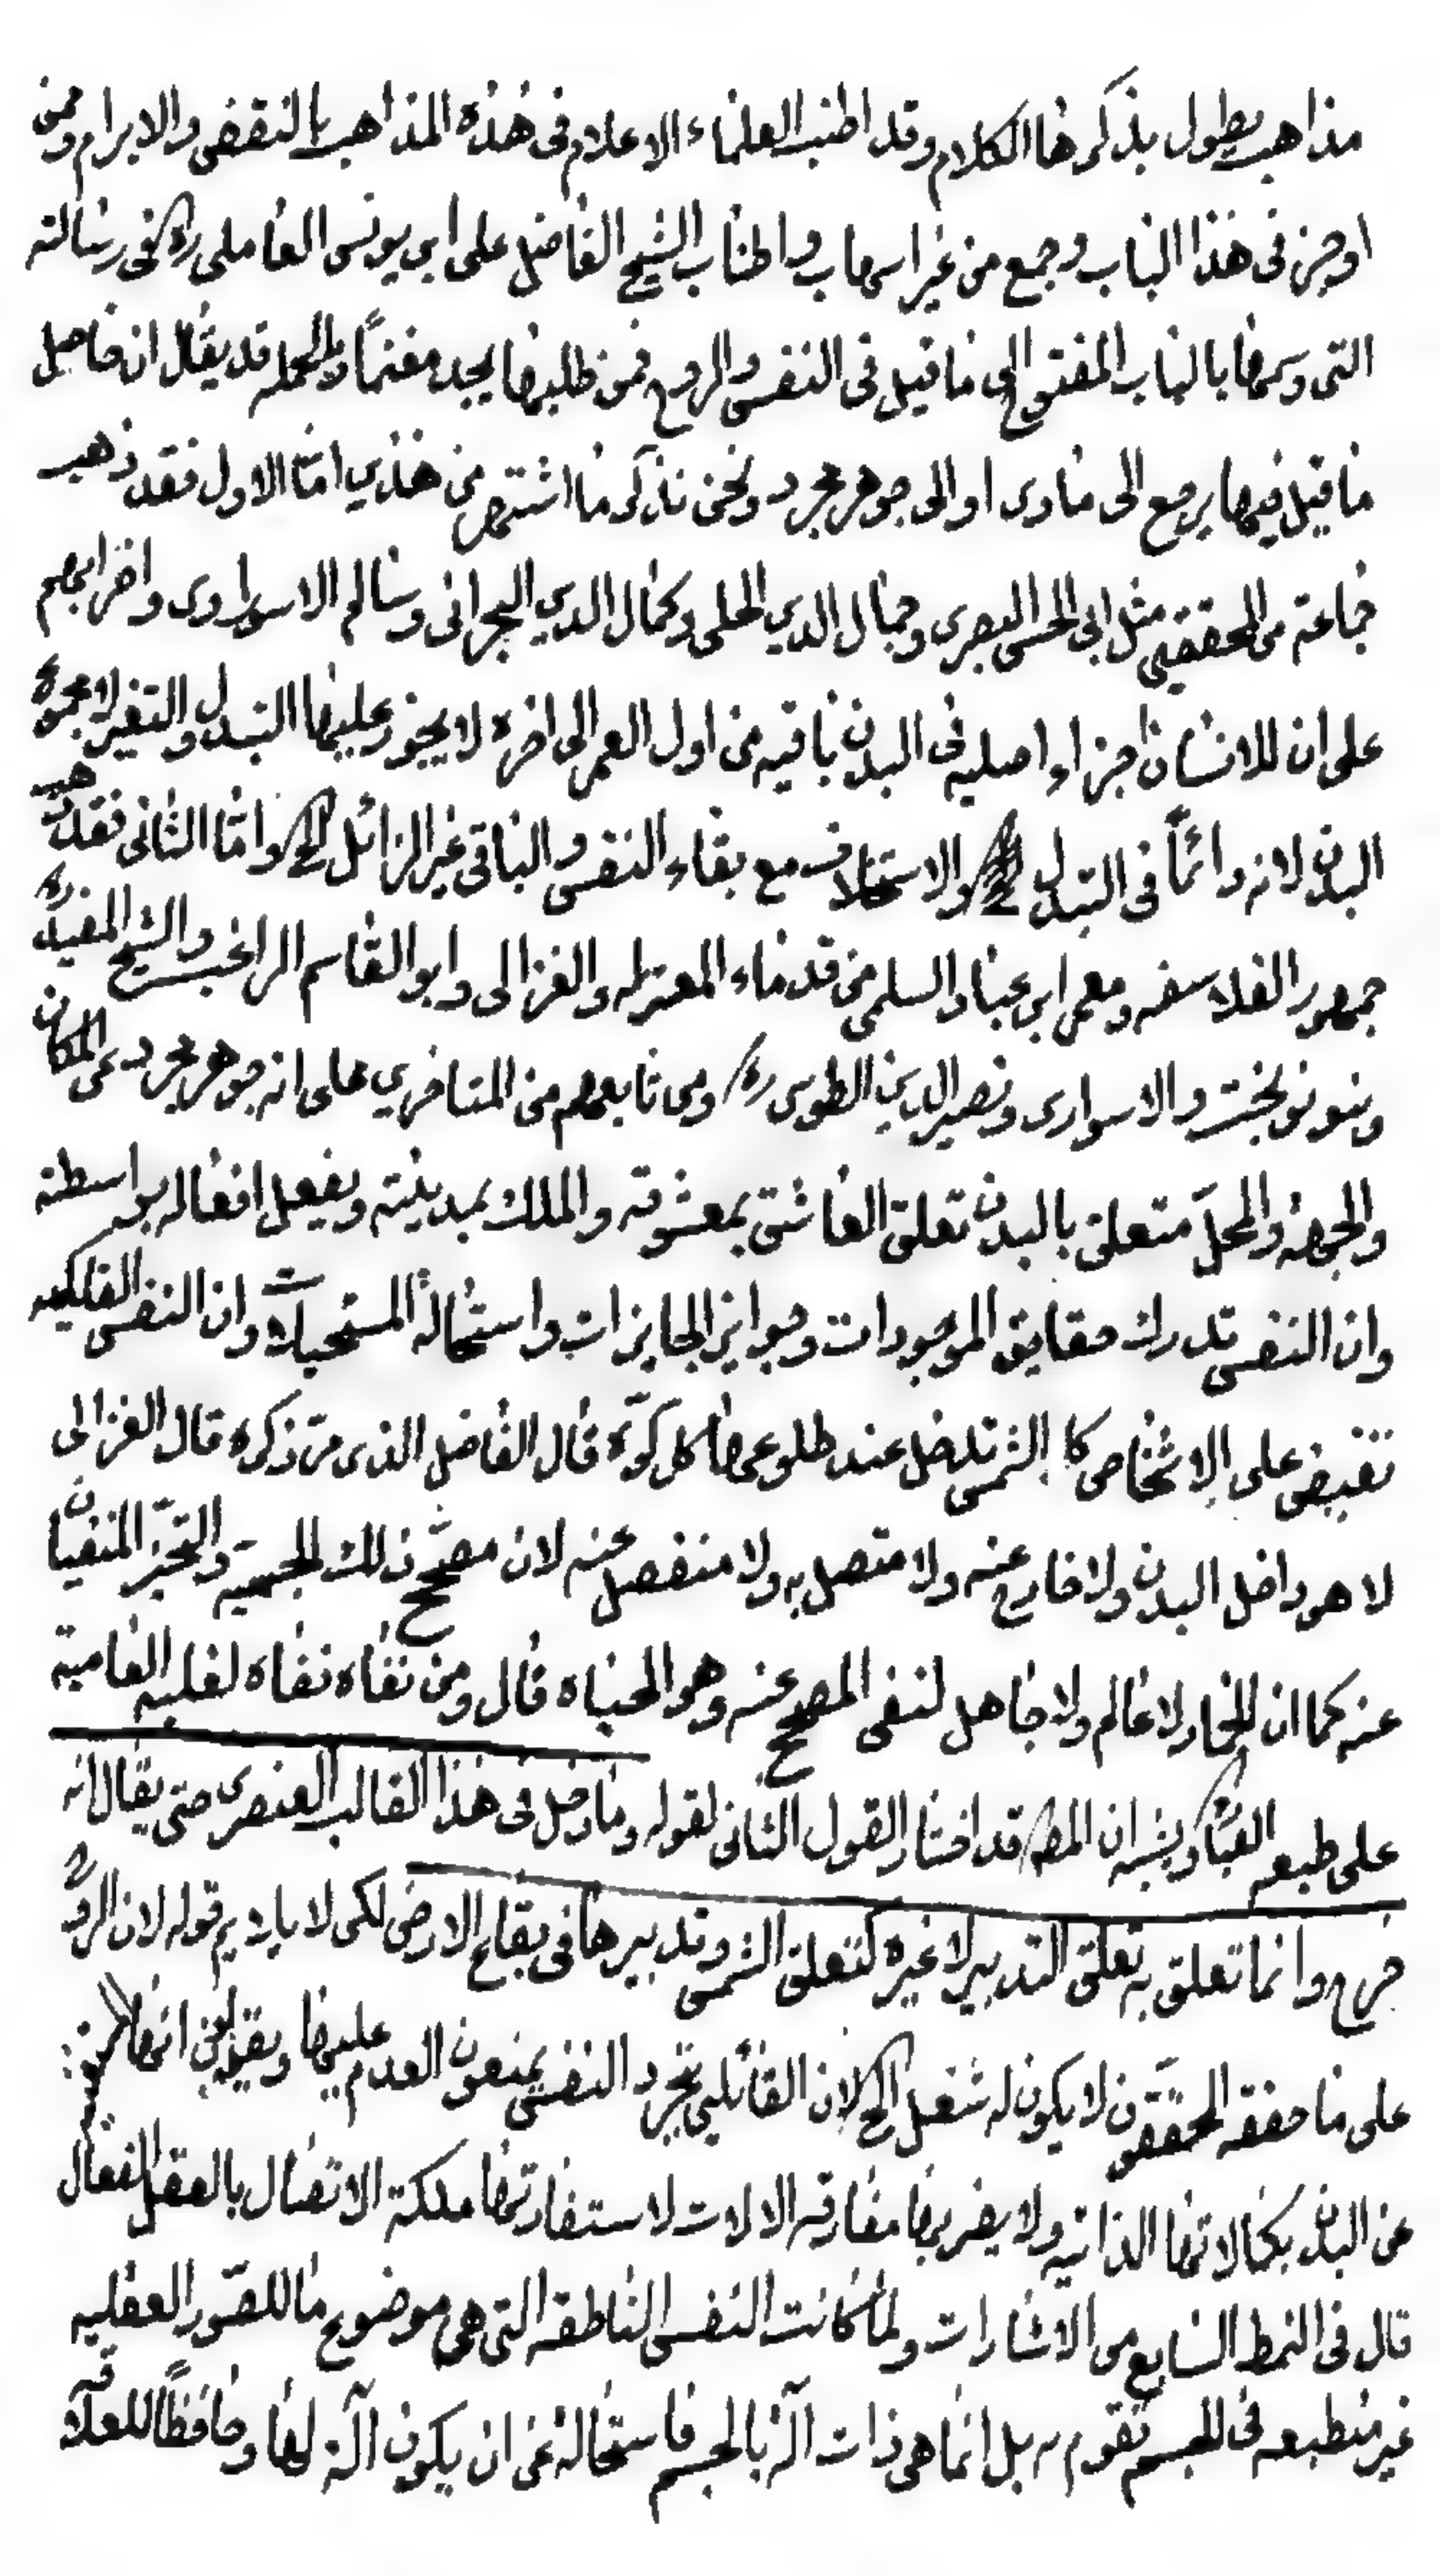 مذاهب يطول بذكرها الكلام وقد اطنب العلماء الاعلام فى هذه المذاهب بالنقض والابرام وممن
اوجز فى هذا الباب وجمع من غير اسهاب واطناب الشيخ الفاضل على ابن يونس العاملى ره فى رسالته
التى وسمها بالباب المفتوح الى ما قيل فى النفس والروح فمن طلبها يجد مغنماً وبالجمله قد يقال ان حاصل
ما قيل فيها يرجع الى مادى او الى جوهر مجرد ونحن نذكر ما اشتهر من هذين امّا الاول فقد ذهب
جماعة من المحققين مثل ابى الحسن البصرى وجمال الدين الحلى وكمال الدين البحرانى وسالم الاسوراوى واضرابهم
على ان للانسان اجزاء اصليه فى البدن باقيه من اول العمر الى اخره لا يجوز عليها التبدل والتغير لا مجموع
البدن لانه دائماً فى التبدل والاستخلاف مع بقاء النفس والباقى غير الزائل الخ وامّا الثانى فقد ذهب
جمهور الفلاسفه ومعمر ابن عباد السلمى من قدماء المعتزله والغزالى وابو القاسم الراغب والشيخ المفيد ره
وبنو نوبخت والاسوارى ونصير الدين الطوسى ره ومن تابعهم من المتاخرين على انه جوهر مجرد عن المكان
والجهة والمحلّ متعلق بالبدن تعلق العاشق بمعشوقه والملك بمدينته ويفعل افعاله بواسطته
وان النفس تدرك حقايق الموجودات وجوايز الجايزات واستحالة المستحيلات وان النفس الفلكيه
تفيض على الاشخاص كا الشمس تدخل عند طلوعها كل كوّة قال الفاضل الذى مرّ ذكره قال الغزالى
لا هو داخل البدن ولا خارج عنه ولا متصل به ولا منفصل عنه لان مصحّح ذلك الجسميّه والتحيّز المنفيان
عنه كما ان للجماد لا عالم ولا جاهل لنفى المصحح عنه وهو الحياه قال ومن نفاه نفاه لغلبه العامية
على طبعه الخ ويشبه ان المص قد اختار القول الثانى لقوله وما دخل فى هذا القالب العنصرى حتى يقال انه
خرج وانما تعلق به تعلق التدبير لا غيره كتعلق الشمس وتدبيرها فى بقاع الارض لكى لا يلايم قوله لان الروح
على ما حققه المحققون لا يكون له شغل الخ لان القائلين بتجرد النفس يمنعون العدم عليها ويقولون انها
عن البدن بكمالاتها الذاتيه ولا يضر بها مفارقه الالات لاستفادتها ملكة الاتصال بالعقل الفعال
قال فى النمط السابع من الاشارات ولمّا كانت النفس الناطقه التى هى موضوع ما للصّور العقليه
غير منطبعه فى الجسم تقوم به بل انما هى ذات آلة بالجسم فاستحالة عن ان يكون آلة لها وحافظاً للعلاقه